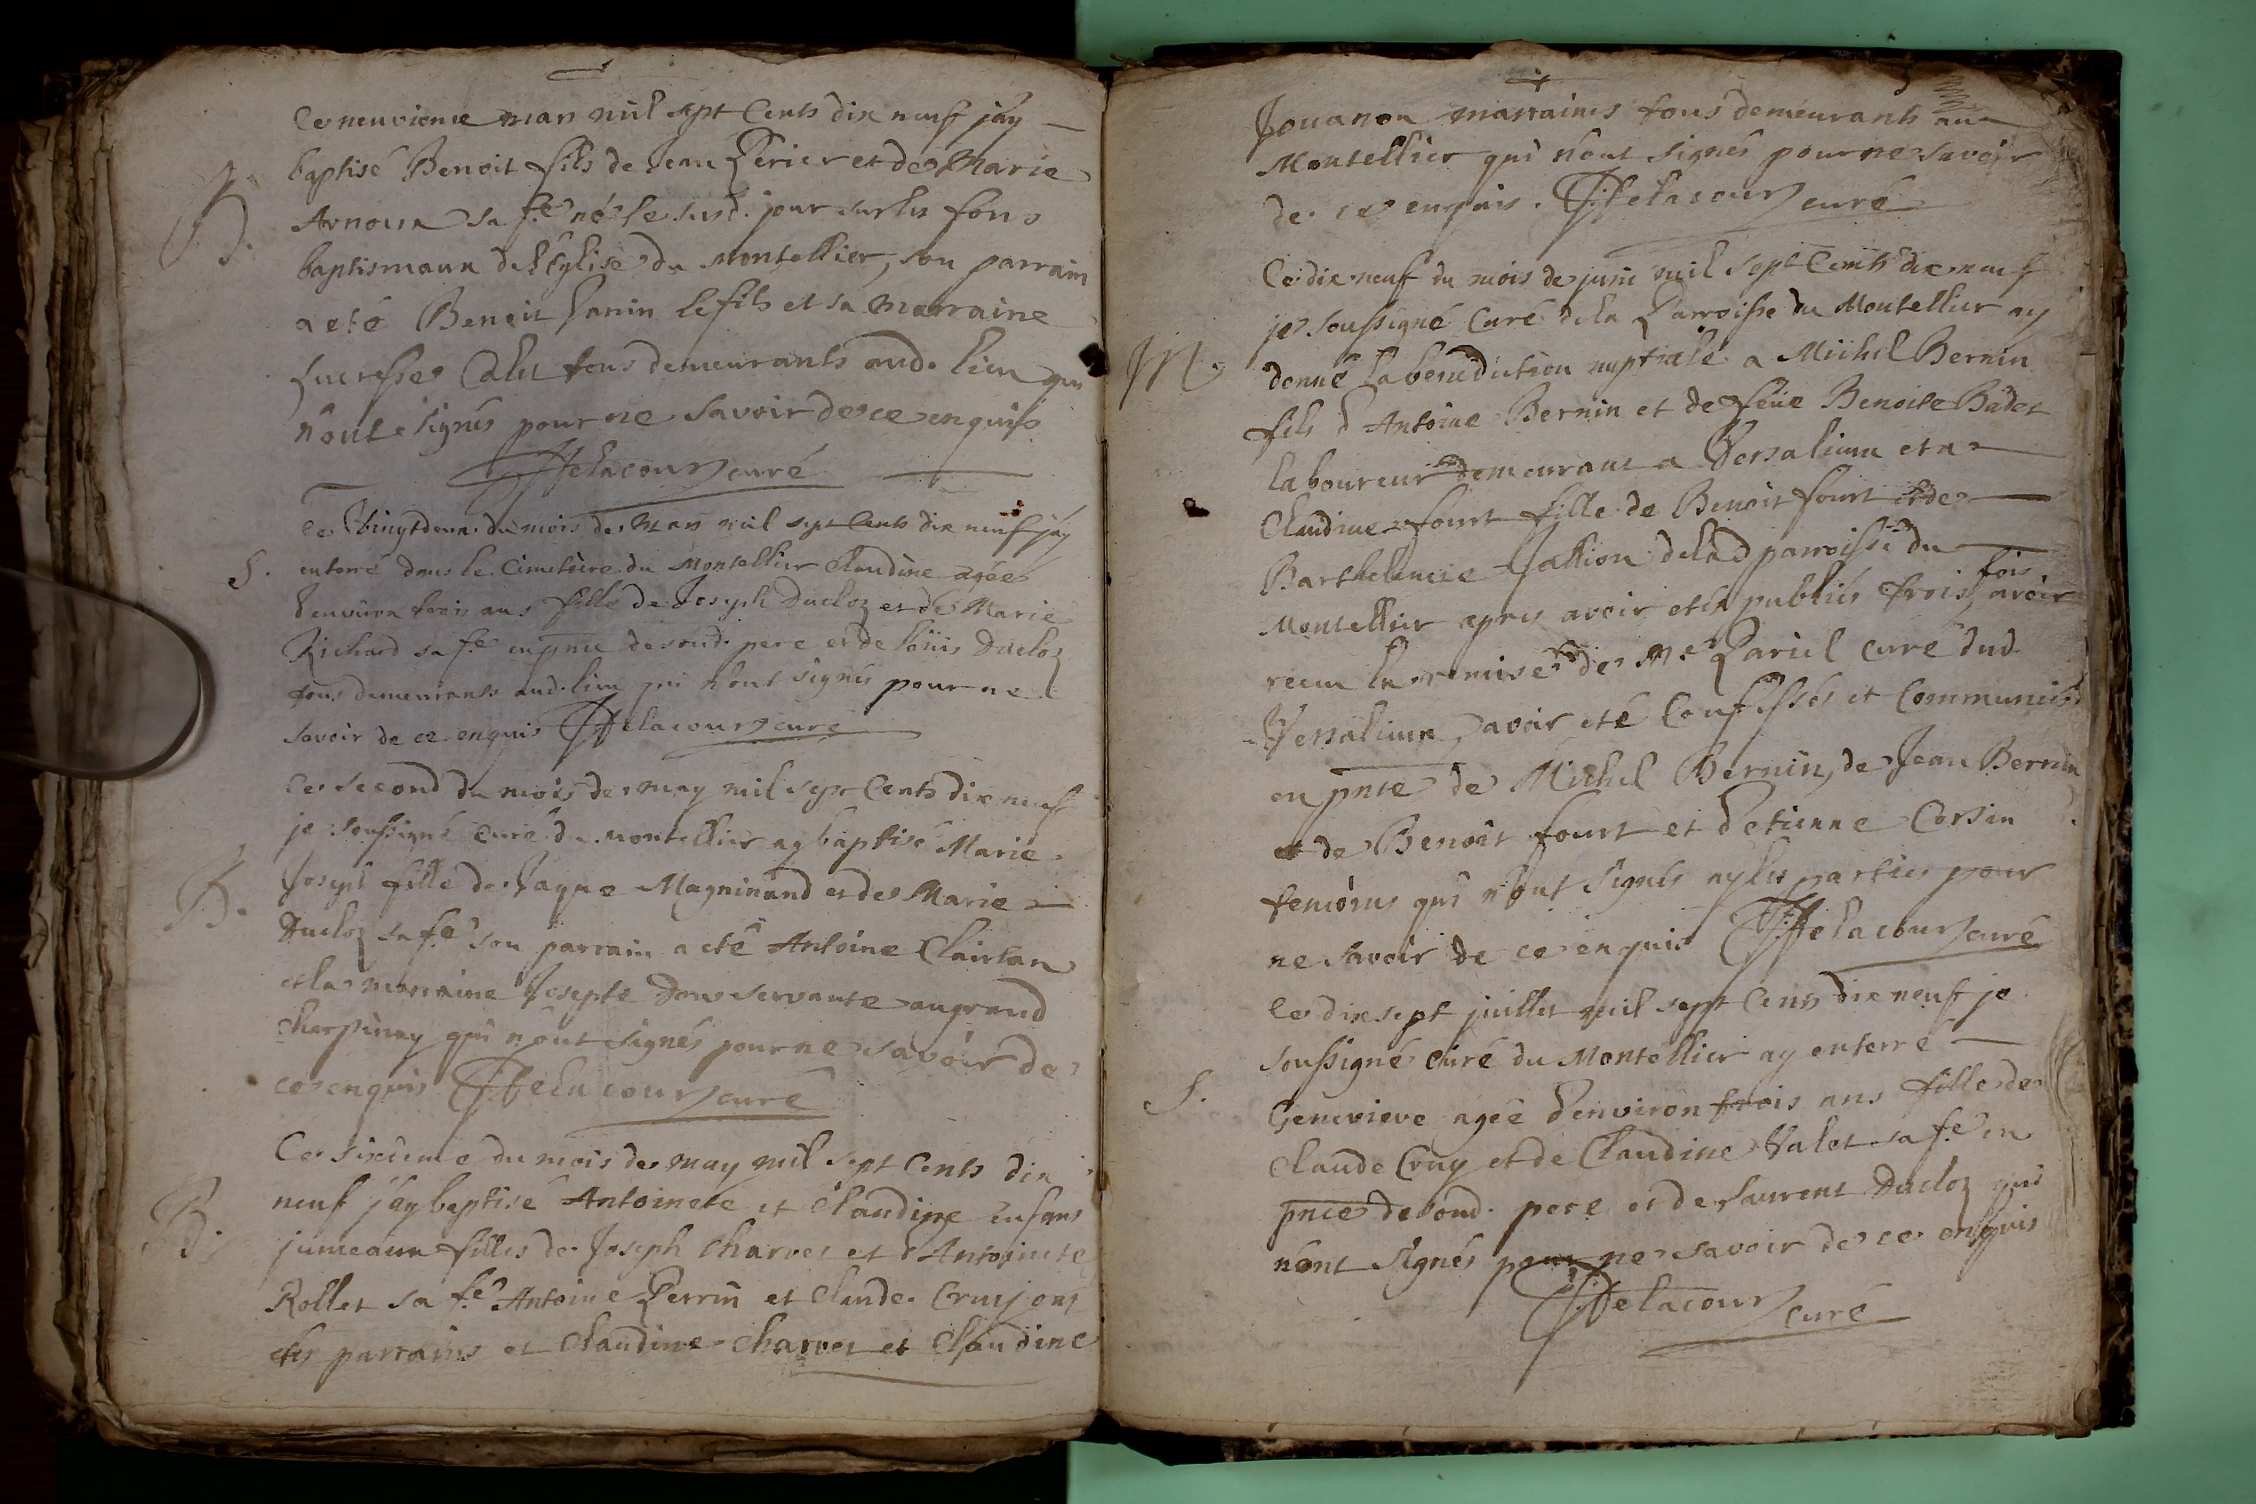 Ce neuvieme mars mil sept Cents dix neuf j'ay
baptisé Benoit fils de Jean Perier et de Marie
B.
Arnoux sa fe né le susd. jour sur les fons
baptismaux de l'Eglise du Montellier, son parrain
a eté Benoit Panin le fils et sa marraine
Lucresse tous demeurants aud. lieu qui
n'ont signés pour ne savoir de ce enquis
Delacour curé
Ce Vingt deux du mois de Mars mil sept Cents dix neuf j'ay
S.
enterré dans le Cimetiere du Montellier Claudine agée
d'environ trois ans fille de Joseph Ducloz et de Marie
Richard sa fe en pnce de sond. pere et de Loüis Ducloz
tous demeurants aud. lieu qui n'ont signés pour ne
savoir de ce enquis Delacour curé
Ce second du mois de may mil sept Cents dix neuf
je soussigné Curé du Montellier ay baptisé Marie
B.
Joseph fille de Jaque Magninand et de Marie
Ducloz sa fe son parrain a eté Antoine
et la marraine Josepte servante au grand
qui n'ont signés pour ne savoir de
ce enquis Delacour curé
Ce sixieme du mois de may mil sept Cents dix
neuf j'ay baptisé Antoinete et Claudine enfans
B.
jumeaux filles de Joseph Charvet et d'Antoinete
Rollet sa fe Antoine Perrin et Claude Cruy ont
etés parrains et Claudine Charvet et Claudine
Jouanon marraines tous demeurants au
Montellier qui n'ont signés pour ne savoir
de ce enquis. Delacour curé
Ce dix neuf du mois de juin mil sept Cents dix neuf
je soussigné Curé de la Parroisse du Montellier ay
M.
donné la benediction nuptiale a Michel Bernin
fils d'Antoine Bernin et de feüe Benoite Badet
laboureur demeurant a Versalieux et a
Claudine fourt fille de Benoit fourt et de
Barthelemie de lad parroisse du
Montellier apres avoir eté publiés trois fois, avoir
receu la remise de Mre Pariel curé dud
Versalieux, avoir eté Confessés et Communiés
en pnce de Michel Bernin, de Jean Bernin
et de Benoit fourt et d'etienne Corsin
temoins qui n'ont signés ny les parties pour
ne savoir de ce enquis Delacour curé
Ce dix sept juillet mil sept Cents dix neuf je
soussigné curé du Montellier ay enterré
S.
Genevieve agée d'environ trois ans fille de
Claude Cruy et de Claudine Valet sa fe en
pnce de sond. pere et de Laurent Ducloz qui
n'ont signés pour ne savoir de ce enquis
Delacour curé